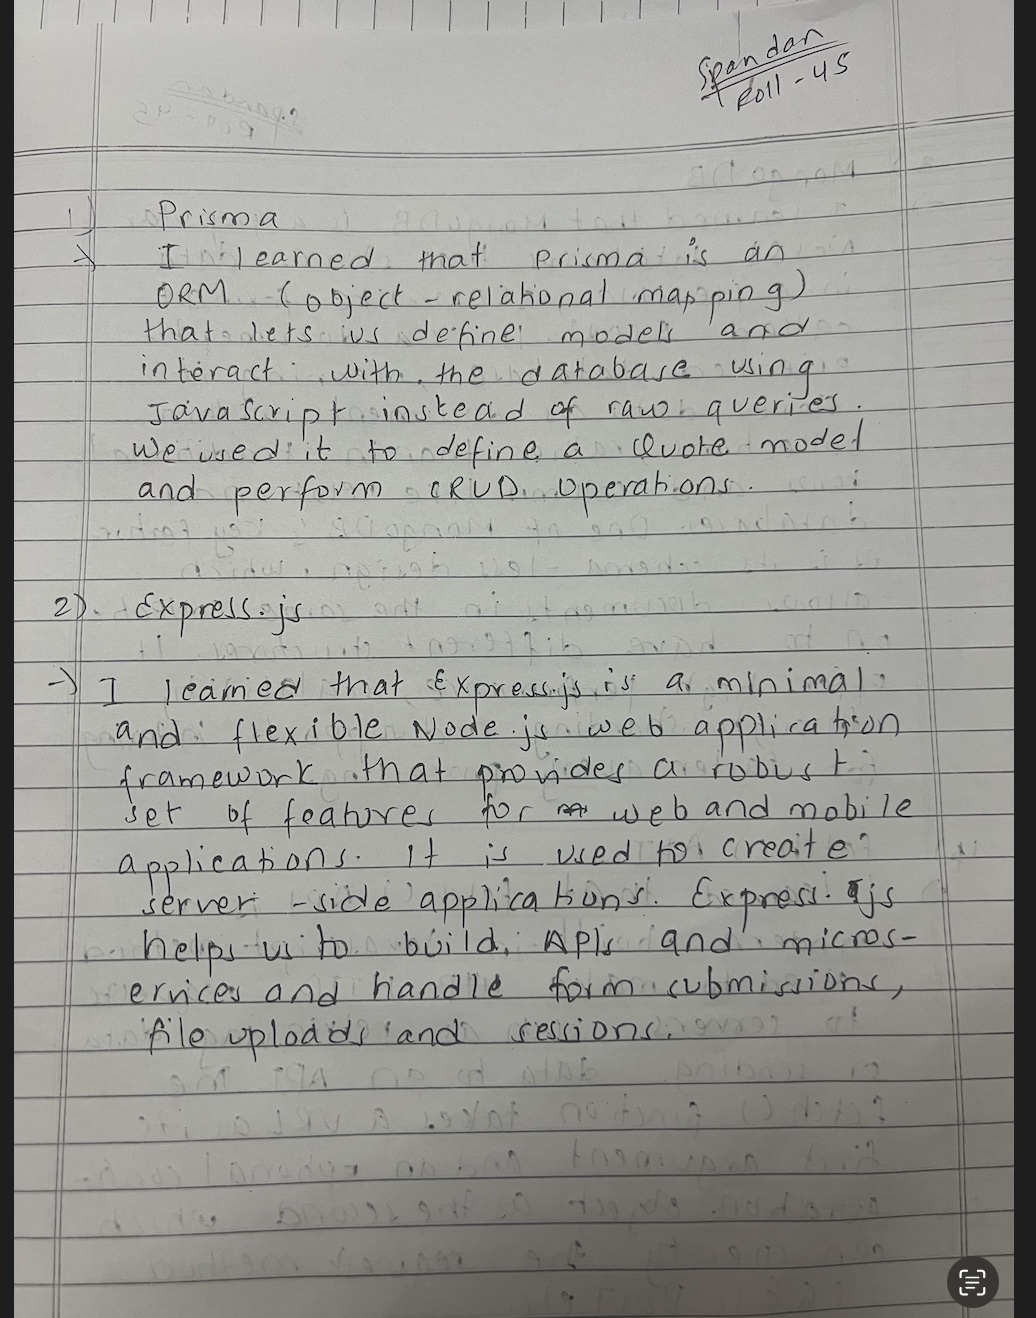 Spandan
Roll - 45
1) Prisma
→ I learned that Prisma is an
ORM (object - relational mapping)
that lets us define models and
interact with the database using
JavaScript instead of raw queries.
We used it to define a Quote model
and perform CRUD operations.
2). Express.js
→ I learned that Express.js is a minimal
and flexible Node.js web application
framework that provides a robust
set of features for web and mobile
applications. It is used to create
server -side applications. Express.js
helps us to build APIs and micros-
ervices and handle form submissions,
file uploads and sessions.